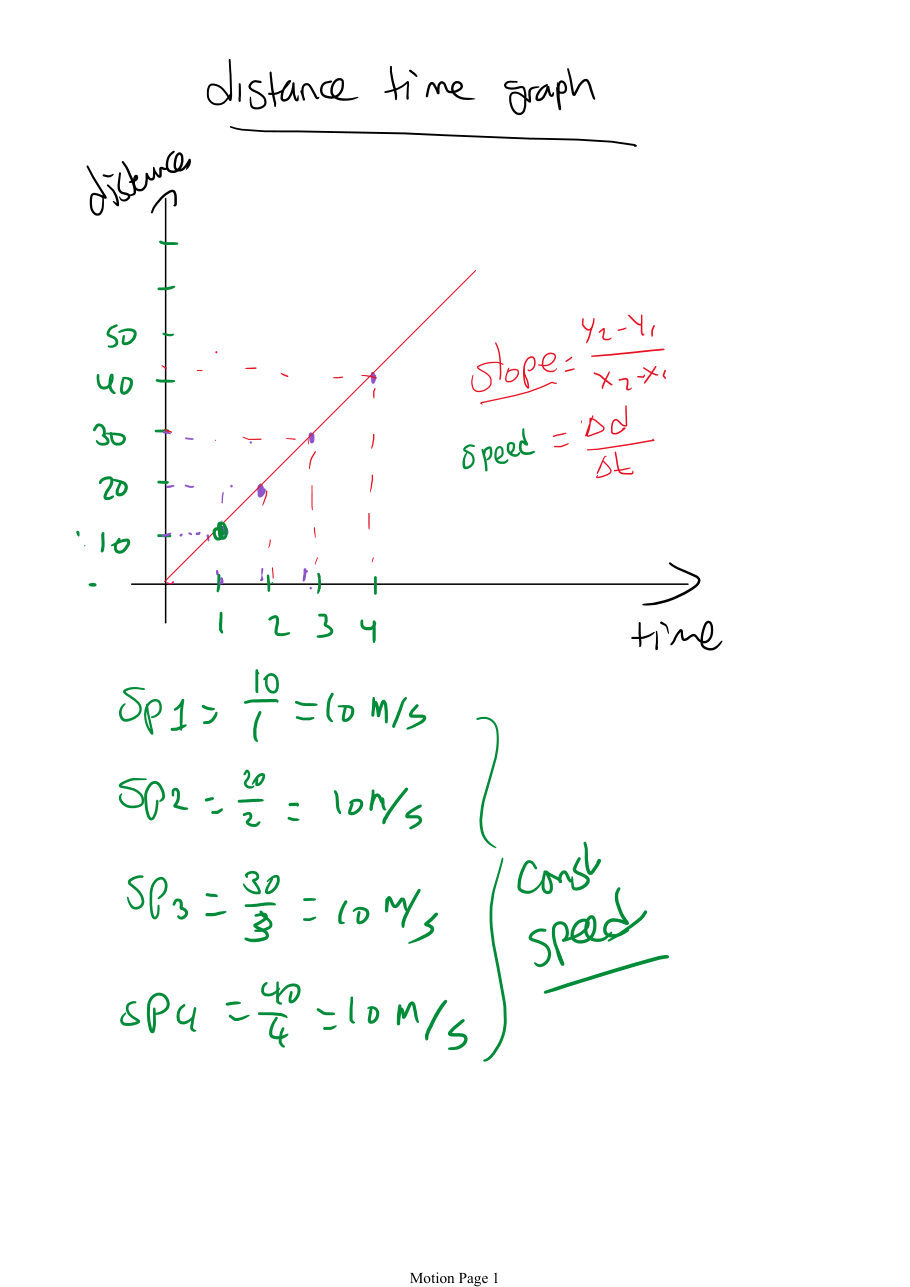 distance time graph
distance
50
40
30
20
10
1 2 3 4
time
slope = y₂-y₁ / x₂-x₁
speed = Δd / Δt
Sp1 = 10/1 = 10 m/s
Sp2 = 20/2 = 10 m/s
Sp3 = 30/3 = 10 m/s
SP4 = 40/4 = 10 m/s
const
speed
Motion Page 1